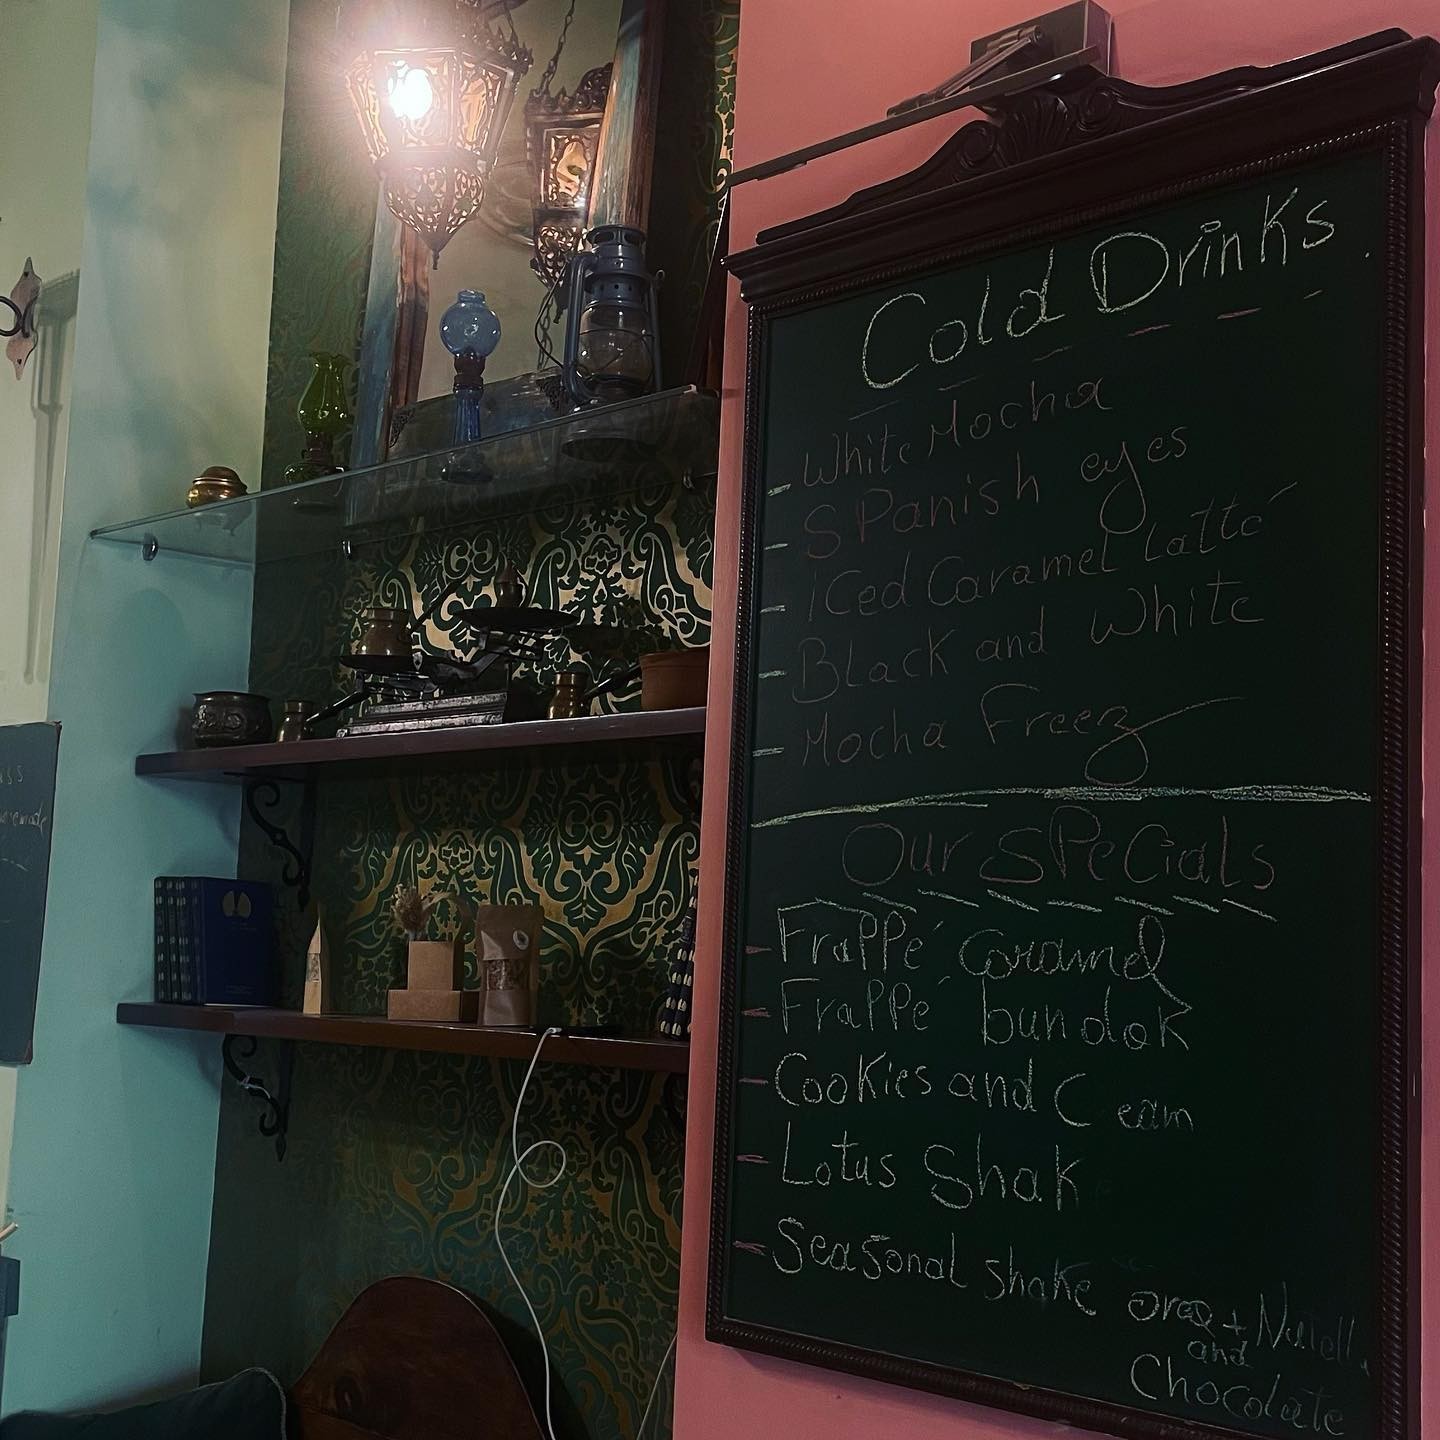 Cold Drinks.
- White Mocha
- SPanish eyes
- ICed Caramel Latté
- BLack and White
- Mocha Freez
Our SPeCiaLs
- FraPPé Caramel
- FraPPé bundok
- CooKies and C eam
- Lotus ShaK
- Seasonal shaKe oreo + Nutella
and
Chocolate